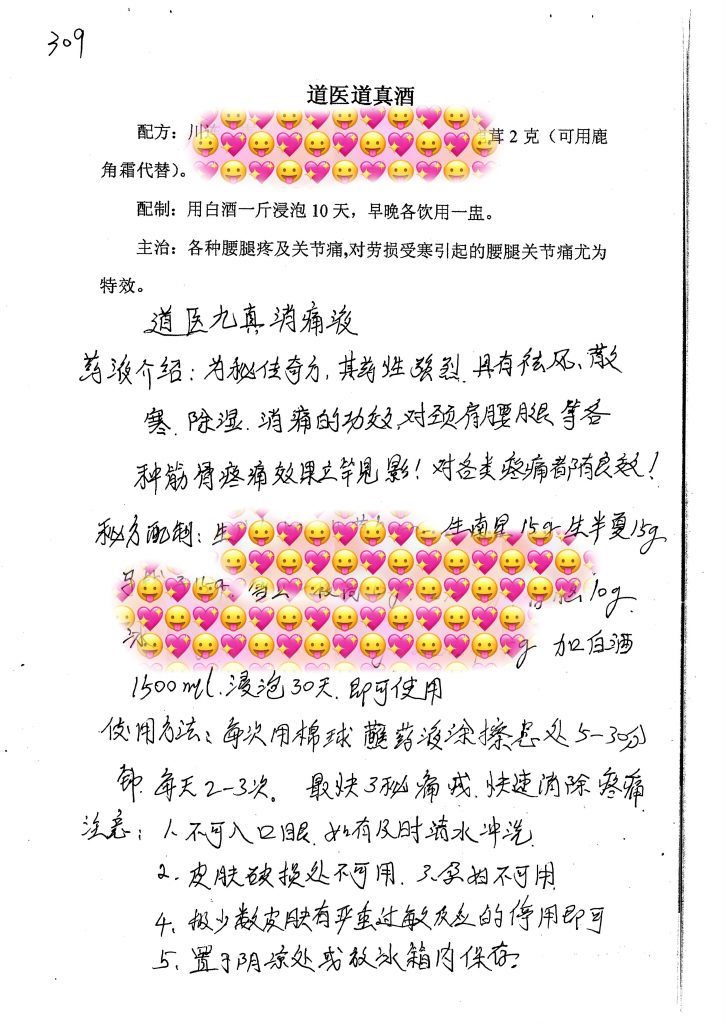 309
道医道真酒
配方：川 茸 2 克（可用鹿
角霜代替）。
配制：用白酒一斤浸泡 10 天，早晚各饮用一盅。
主治：各种腰腿疼及关节痛,对劳损受寒引起的腰腿关节痛尤为
特效。
道医九真消痛液
药液介绍：为秘传奇方,其药性强烈.具有祛风、散
寒.除湿.消痛的功效,对颈肩腰腿等各
种筋骨疼痛效果立竿见影！对各类疼痛都有良效！
秘方配制：生 生南星15g 生半夏15g
15g. 10g.
g 加白酒
1500ml.浸泡30天.即可使用
使用方法：每次用棉球蘸药液涂擦患处5-30分
钟.每天2-3次。 最快3秒痛或.快速消除疼痛
注意：1.不可入口眼.如有及时清水冲洗.
2.皮肤破损处不可用.3.孕妇不可用
4.极少数皮肤有严重过敏反应的停用即可
5.置于阴凉处或放冰箱内保存.